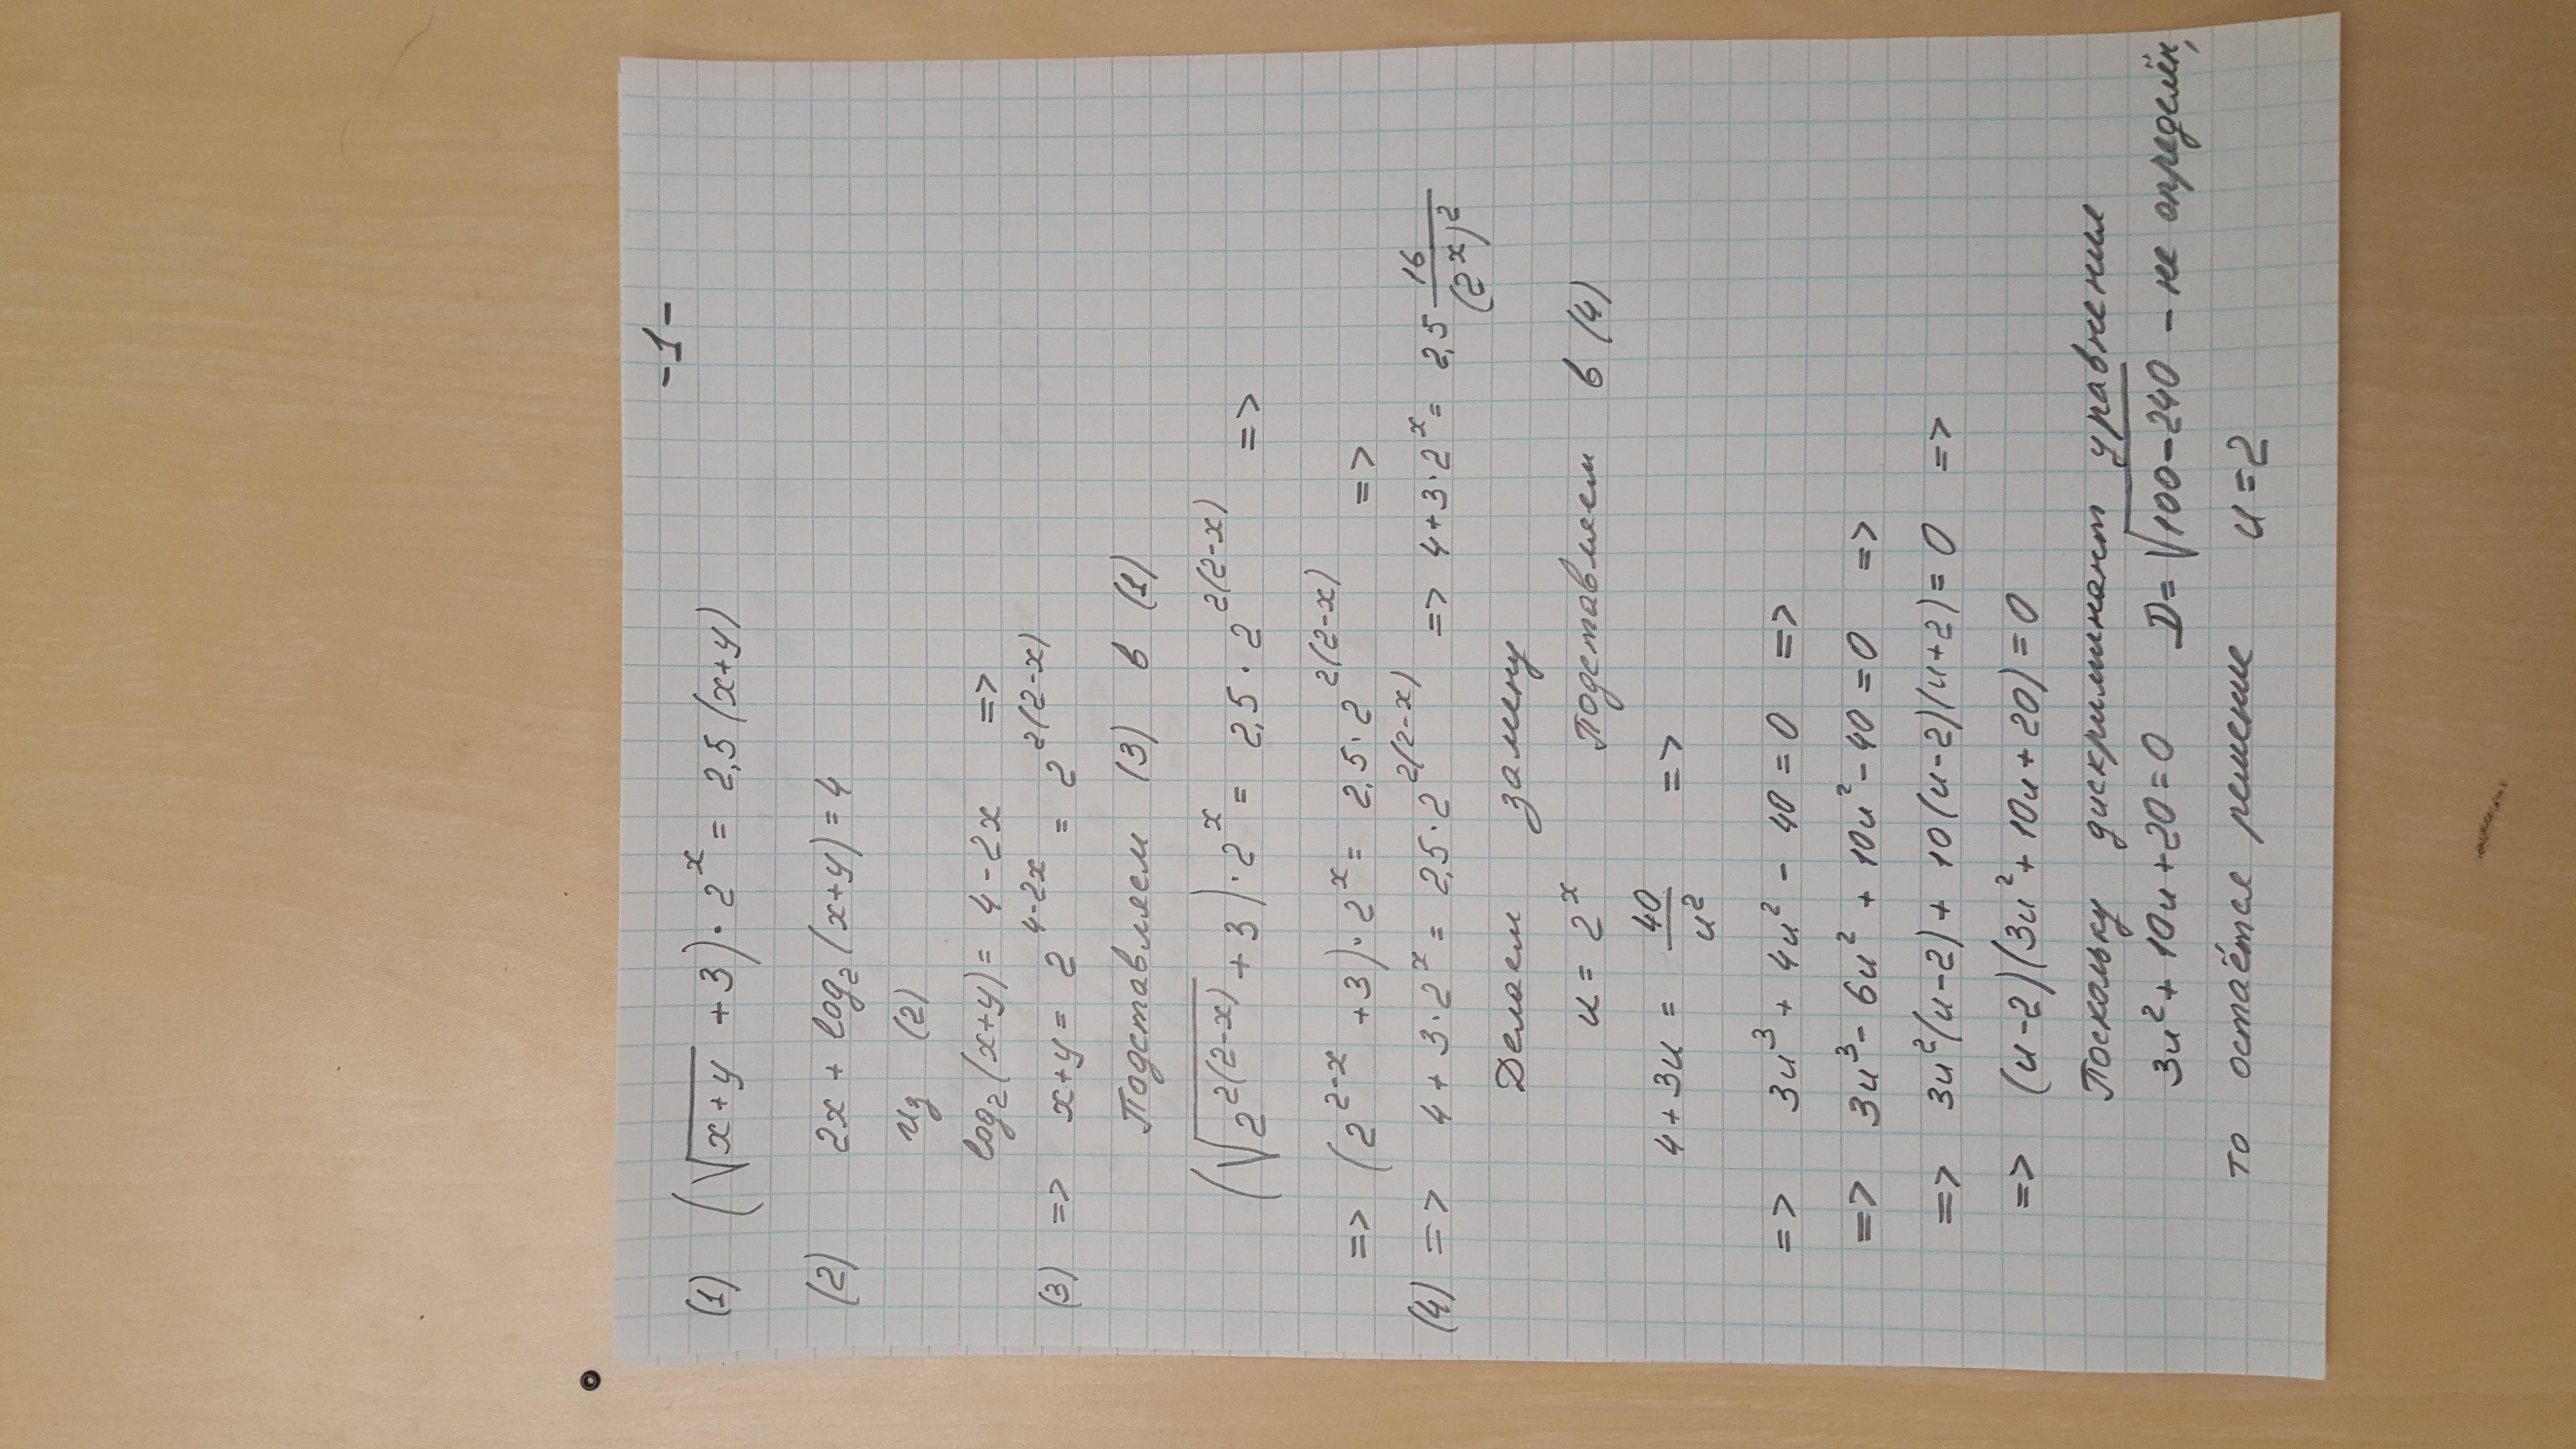 -1-
(1) (√(x+y) + 3) · 2^x = 2,5 (x+y)
(2) 2x + log₂(x+y) = 4
Из (2)
log₂(x+y) = 4-2x =>
(3) => x+y = 2^(4-2x) = 2^(2(2-x))
Подставляем (3) в (1)
(√(2^(2(2-x))) + 3) · 2^x = 2,5 · 2^(2(2-x)) =>
=> (2^(2-x) + 3) · 2^x = 2,5 · 2^(2(2-x)) =>
(4) => 4 + 3 · 2^x = 2,5 · 2^(2(2-x)) => 4+3·2^x = 2,5 16/(2^x)^2
Делаем замену
u = 2^x Подставляем в (4)
4 + 3u = 40/u² =>
=> 3u³ + 4u² - 40 = 0 =>
=> 3u³ - 6u² + 10u² - 40 = 0 =>
=> 3u²(u-2) + 10(u-2)(u+2) = 0 =>
=> (u-2)(3u² + 10u + 20) = 0
Поскольку дискриминант уравнения
3u² + 10u + 20 = 0 D = √(100-240) - не определён,
то остаётся решение u = 2